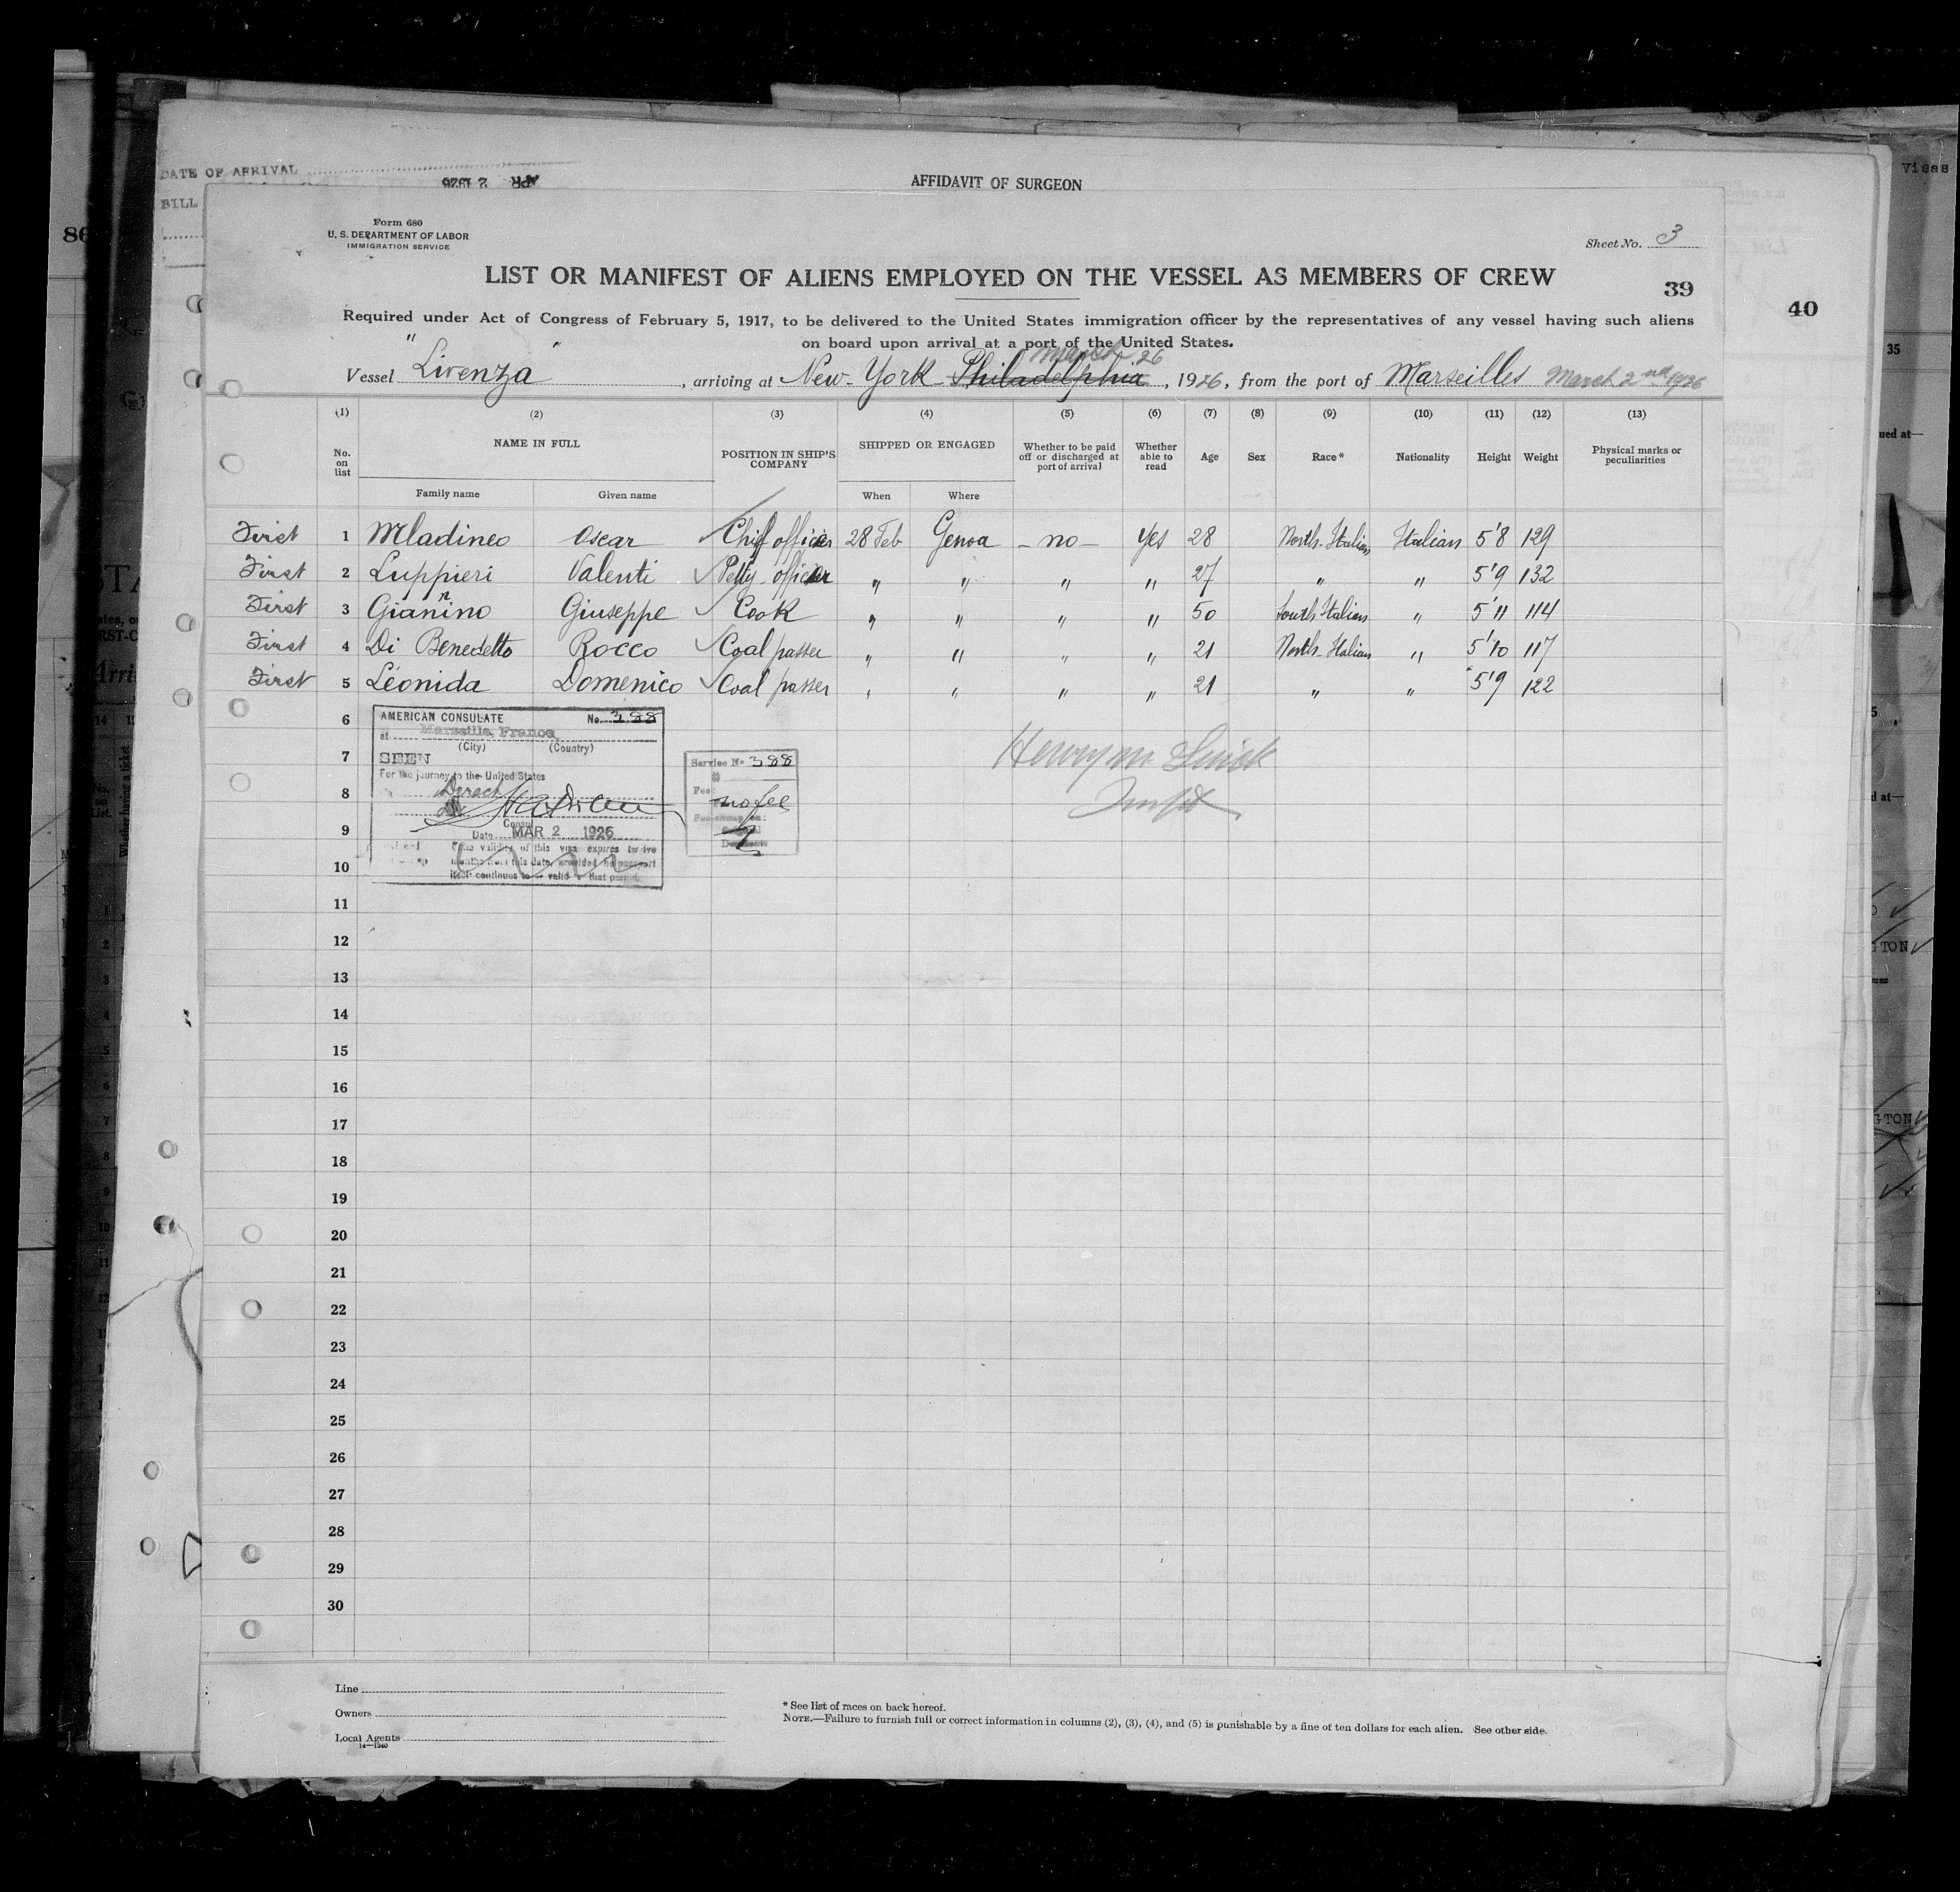 DATE OF ARRIVAL
APR 2 1926
AFFIDAVIT OF SURGEON
BILL
Form 680
U. S. DEPARTMENT OF LABOR
IMMIGRATION SERVICE
Sheet No. 3
LIST OR MANIFEST OF ALIENS EMPLOYED ON THE VESSEL AS MEMBERS OF CREW
39
40
Required under Act of Congress of February 5, 1917, to be delivered to the United States immigration officer by the representatives of any vessel having such aliens
on board upon arrival at a port of the United States.
March 26
Vessel "Livenza", arriving at New-York Philadelphia, 1926, from the port of Marseilles March 2nd 1926
(1) (2) (3) (4) (5) (6) (7) (8) (9) (10) (11) (12) (13)
No. on list NAME IN FULL POSITION IN SHIP'S COMPANY SHIPPED OR ENGAGED Whether to be paid off or discharged at port of arrival Whether able to read Age Sex Race* Nationality Height Weight Physical marks or peculiarities
Family name Given name When Where
First 1 Mladineo Oscar Chief officer 28 Feb Genoa - no - Yes 28 North-Italian Italian 5'8 129
First 2 Luppieri Valenti Petty-officer " " " " 27 " " 5'9 132
First 3 Giannino Giuseppe Cook " " " " 50 South Italian " 5'11 114
First 4 Di Benedetto Rocco Coal passer " " " " 21 North-Italian " 5'10 117
First 5 Léonida Domenico Coal passer " " " " 21 " " 5'9 122
6
7
8
9
10
AMERICAN CONSULATE No. 388
at Marseille, France
(City) (Country)
SEEN
For the journey to the United States
Direct
Consul
Date MAR 2 1926
The validity of this visa expires twelve
months from this date, provided the passport
itself continues to be valid for that period.
Service No 388
Fee: no fee
Henry M.
11
12
13
14
15
16
17
18
19
20
21
22
23
24
25
26
27
28
29
30
Line
Owners
Local Agents
14—1940
* See list of races on back hereof.
NOTE.—Failure to furnish full or correct information in columns (2), (3), (4), and (5) is punishable by a fine of ten dollars for each alien. See other side.